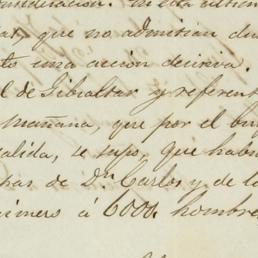 consideracion. En esta ultim
que no admitian du
to una accion decisiva.
l de Gibraltar y referent
mañana, que por el bu
alida, se supo, que habi
has de Dn. Carlos y de l
rimero á 6000. hombre